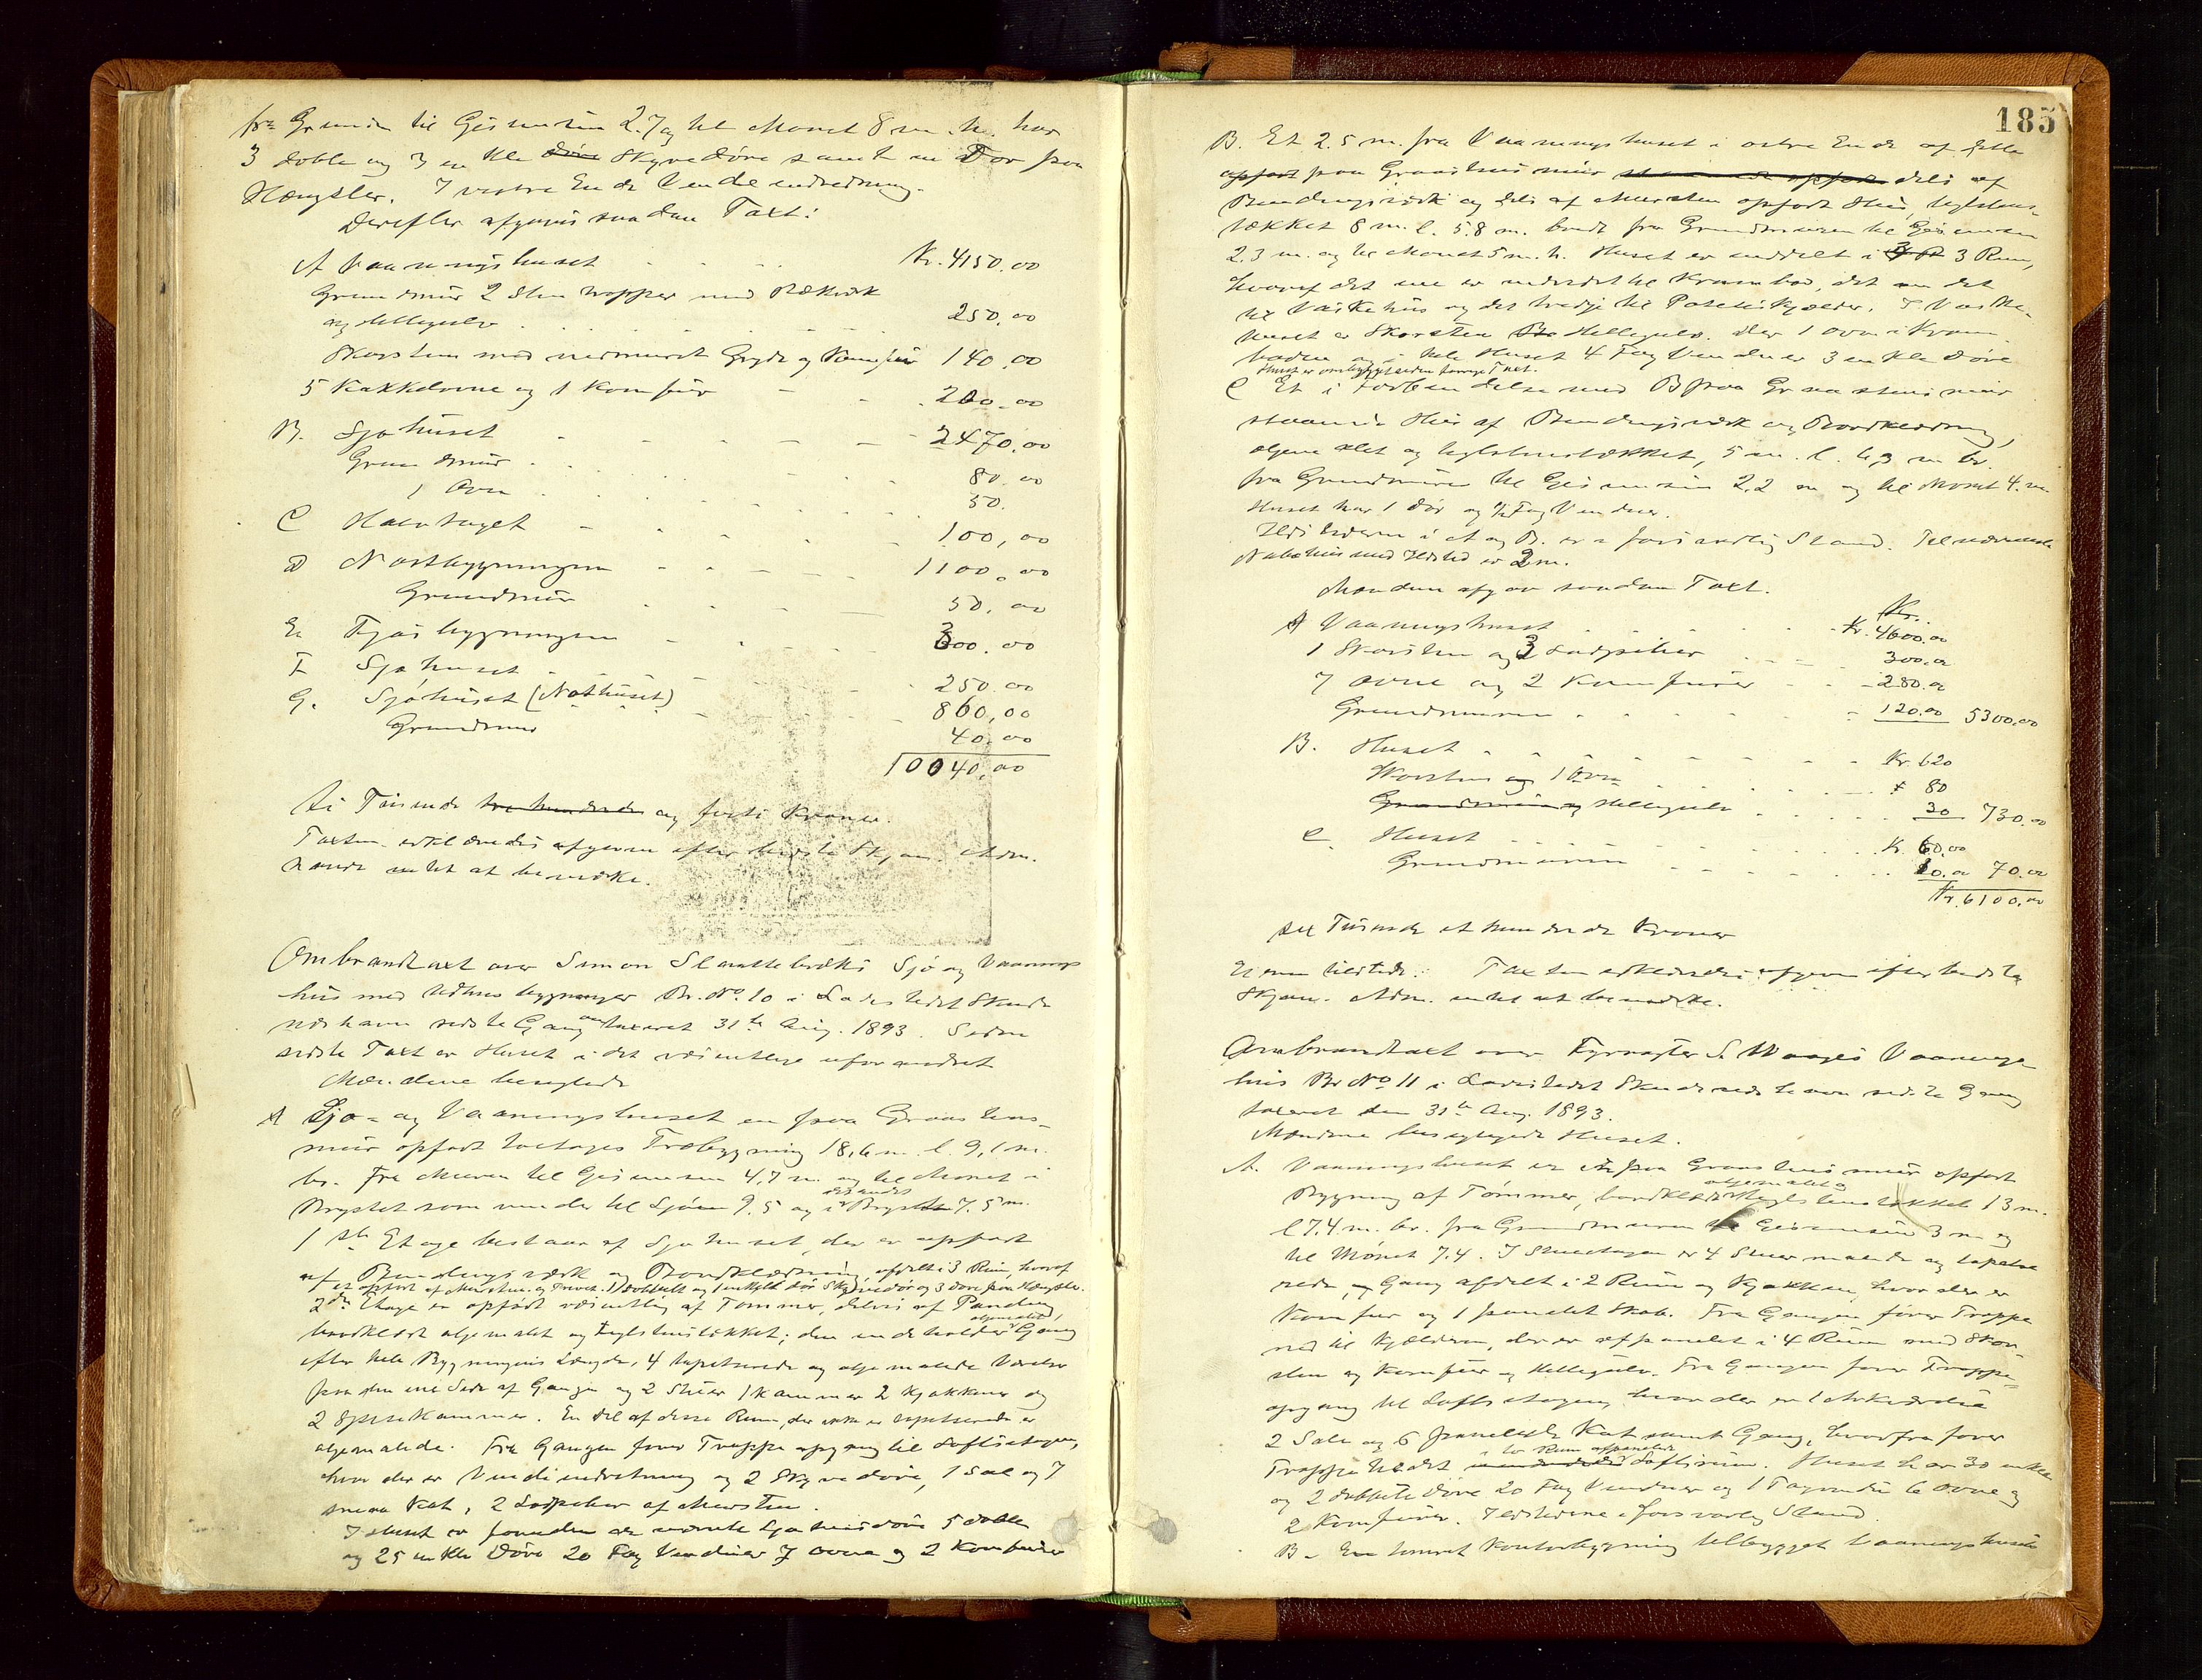 fra Grunden til Gesimsen 2.7 og til Mønet 8 m. h. har
3 doble og 3 enkle Døre Skyvedøre samt en Dør paa
Hængsler. I vestre Ende Vendeindredning.
Derefter afgaves saadan Taxt:
A Vaaningshuset Kr. 4150.00
Grundmur 2 Sten trapper med Rækværk
og Hellegulv 250.00
Skorsten med indmuret Gryde og Komfur 140.00
5 Kakkelovne og 1 Komfur 200.00
B. Sjøhuset 2470.00
Grundmur 80.00
1 Ovn 50.
C Halvtaget 100,00
D Nostbygningen 1100.00
Grundmur 50.00
E Fjøsbygningen 300.00
F Sjøhuset 250.00
G. Sjøhuset (Nothuset) 860,00
Grundmur 40.00
10040,00
ti Tusinde tre hundrede og forti Kroner.
Taxten erklæredes afgiven efter bedste Skjøn. Adm.
havde intet at bemerke.
Ombrandtaxt over Simon Slaattebræks Sjø og Vaanings
hus med Udhusbygninger Br. No. 10 i Ladestedet Skude
neshavn sidste Gang omtaxeret 31te Aug. 1893. Siden
sidste Taxt er Huset i det væsentlige uforandret
Mændene besigtede
A Sjø- og Vaaningshuset en paa Graastens-
mur opført toetages Træbygning 18,6 m. l. 9,1 m.
br. Fra Muren til Gesimsen 4,7 m. og til Mønet i
det andet
Brystet som vender til Sjøen 9.5 og i Brystet 7.5 m.
1ste Etage bestaar af Sjøhuset, der er opført
af Bindingsværk og Bordklædning, afdelt i 3 Rum, hvoraf
et opført af Mursten og Privet. 1 dobbelt og 1 enkelt dør Skyvedør og 3 døre paa Hængsler.
2den Etage er opført væsentlig af Tømmer, delvis af Panding,
oljemalet
bordklædt oljemalt og teglstenstækket; den indeholder Gang
efter hele Bygningens Længde, 4 tapetserede og oljemalede Værelser
paa den ene Side af Gangen og 2 Stuer 1 Kammer 2 Kjøkkener og
2 Spisekammer. En del af disse Rum, der ikke er tapetserede er
oljemalede. Fra Gangen fører Trappe opgang til Loftsetagen,
hvor der er Vindeindretning og 2 Skyvedøre, 1 Sal og 7
smaa Kot, 2 Lodpiber af Mursten.
I Huset er foruden de nævnte Sjøhusdøre 5 doble
og 25 enkle Døre 20 Fag Vinduer 7 Ovne og 2 Komfurer
185
B. Et 2.5 m. fra Vaaningshuset i østre Ende af dette
opført paa Graastensmur dels af
Bindingsværk og dels af Mursten opført Hus, teglstens-
tækket 8 m. l. 5.8 m. bredt fra Grundmuren til Gesimsen
2.3 m. og til Mønet 5 m. h. Huset er inddelt i 3 Rum,
hvoraf det ene er indredet til Krambod, det andet
til Vaskehus og det tredje til Potetkjælder. I Vaske-
huset er Skorsten Hellegulv. Der 1 Ovn i Kram
boden og i hele Huset 4 Fag Vinduer 3 enkle Døre
Huset er ombygget siden forrige Taxt.
C Et i Forbindelse med B paa Graastensmur
staaende Hus af Bindingsværk og Bordklædning,
oljemalet og teglstenstækket, 5 m. l. 4,3 m br.
fra Grundmuren til Gesimsen 2,2 m og til Mønet 4. m.
Huset har 1 dør og Fag Vinduer.
Ildstederne i A og B. er i forsvarlig Stand. Til nærmeste
Nabohus med Ildsted er 2 m.
Mændene afgav saadan Taxt.
Kr.
A Vaaningshuset Kr. 4600.00
1 Skorsten og 3 Lodpiber 300.00
7 Ovne og 2 Komfurer 280.00
Grundmuren 120.00 5300.00
B. Huset Kr 620
Skorsten og 1 Ovn 80
Grundmuren og Hellegulv 30 730.00
C. Huset Kr. 60.00
Grundmuren 10.00 70.00
Kr. 6100.00
sex Tusinde et hundrede Kroner
Eieren tilstede. Taxten erklæredes afgiven efter bedste
Skjøn. Adm. intet at bemerke.
Ombrandtaxt over Fyrvogter S. Waages Vaanings
hus Br No 11 i Ladestedet Skudesneshavn sidste Gang
taxeret den 31te Aug. 1893.
Mændene besigtigede Huset.
A. Vaaningshuset er et paa Graastensmur opført
oljemalet og
Bygning af Tømmer, bordklædt teglstenstækket 13 m.
l 7.4 m. br. fra Grundmuren til Gesimsen 3 m og
til Mønet 7.4. I Stueetagen er 4 Stuer malede og tapetse
rede, og Gang afdelt i 2 Rum og Kjøkken, hvor der er
Komfur og 1 panelet Skab. Fra Gangen fører Trappe
ned til Kjælderen, der er afpanelet i 4 Rum med Skor-
sten og Komfur og Hellegulv. Fra Gangen fører Trappe-
opgang til Loftsetagen, hvor der er 1
2 Sale og 6 panelede Kot samt Gang, hvorfra fører
i to Rum afpanelede
Trappe til det Loftsrum. Huset har 30 enkle
og 2 dobbelte Døre 20 Fag Vinduer og 1 Tagvindu 6 Ovne og
2 Komfurer. Ildstederne i forsvarlig Stand.
B. En tømret Kontorbygning tilbygget Vaaningshuset